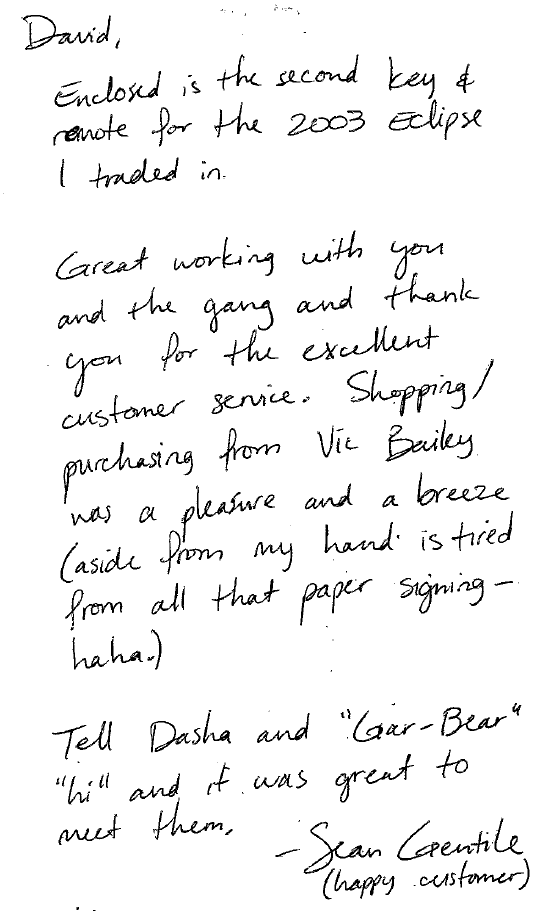 David,
Enclosed is the second key &
remote for the 2003 Eclipse
I traded in.
Great working with you
and the gang and thank
you for the excellent
customer service. Shopping/
purchasing from Vic Bailey
was a pleasure and a breeze
(aside from my hand is tired
from all that paper signing -
haha.)
Tell Dasha and "Gar-Bear"
"hi" and it was great to
meet them.
- Sean Gentile
(happy customer)